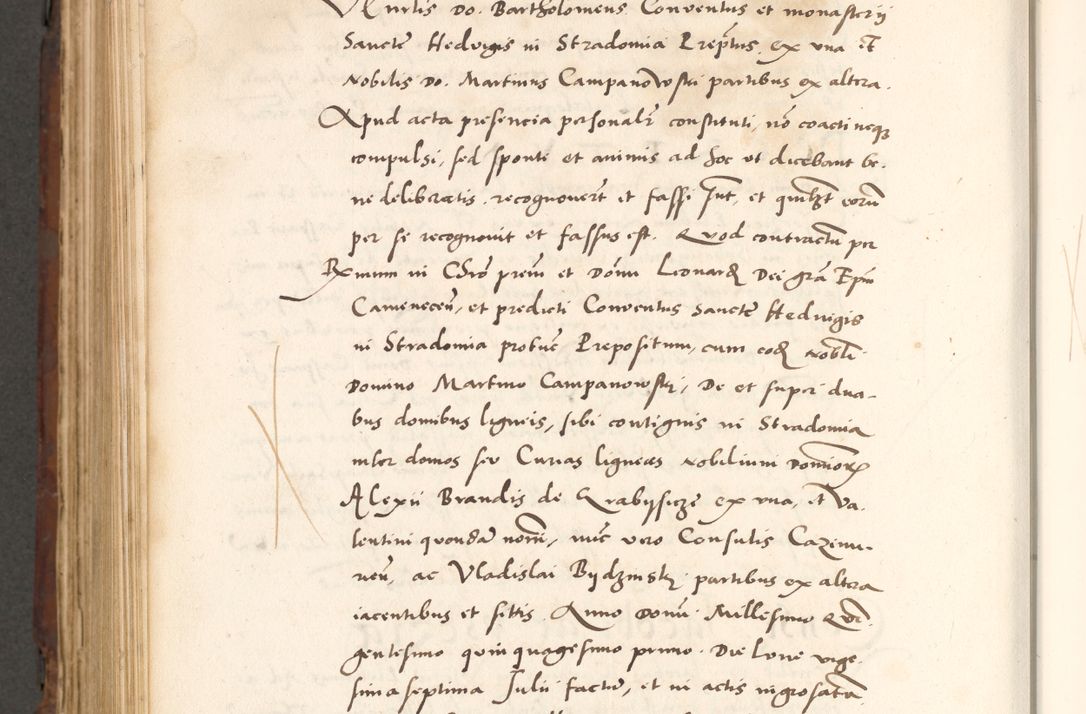 Do. Bartholomeus Conventus et monasterij
Sancte Hedvigis in Stradomia Prepositus ex una et
Nobilis Do. Martinus Campanowski partibus ex altera.
Apud acta presencia personalr constituti, no coacti neqz
compulsi, sed sponte et animis ad hoc ut dicebant be-
ne deliberatis, recognovert et fassi sunt, et quilibet eorum
per se recognovit et fassus est. Quod contractu per
in Chro prem et Donu Leonard Dei gra Epm
Camenecen, et predicti Conventus Sancte Hedvigis
in Stradomia protunc Prepositum, cum eod nobli
Domino Martino Campanowski, De et super dua-
bus domibus ligneis, sibi contiguis in Stradomia
inter domos seu Curias ligneas nobilium Dominorum
Alexii Brandis de ex una, et Va-
lentini quondam nomi, nunc vero Consulis Cazimi-
rien, ac Vladislai partibus ex altera
iacentibus et sitis. Anno Domi Millesimo Quin-
gentesimo quinquagesimo primo. Die lune vige-
sima septima Julii facte, et in actis ingrosatam